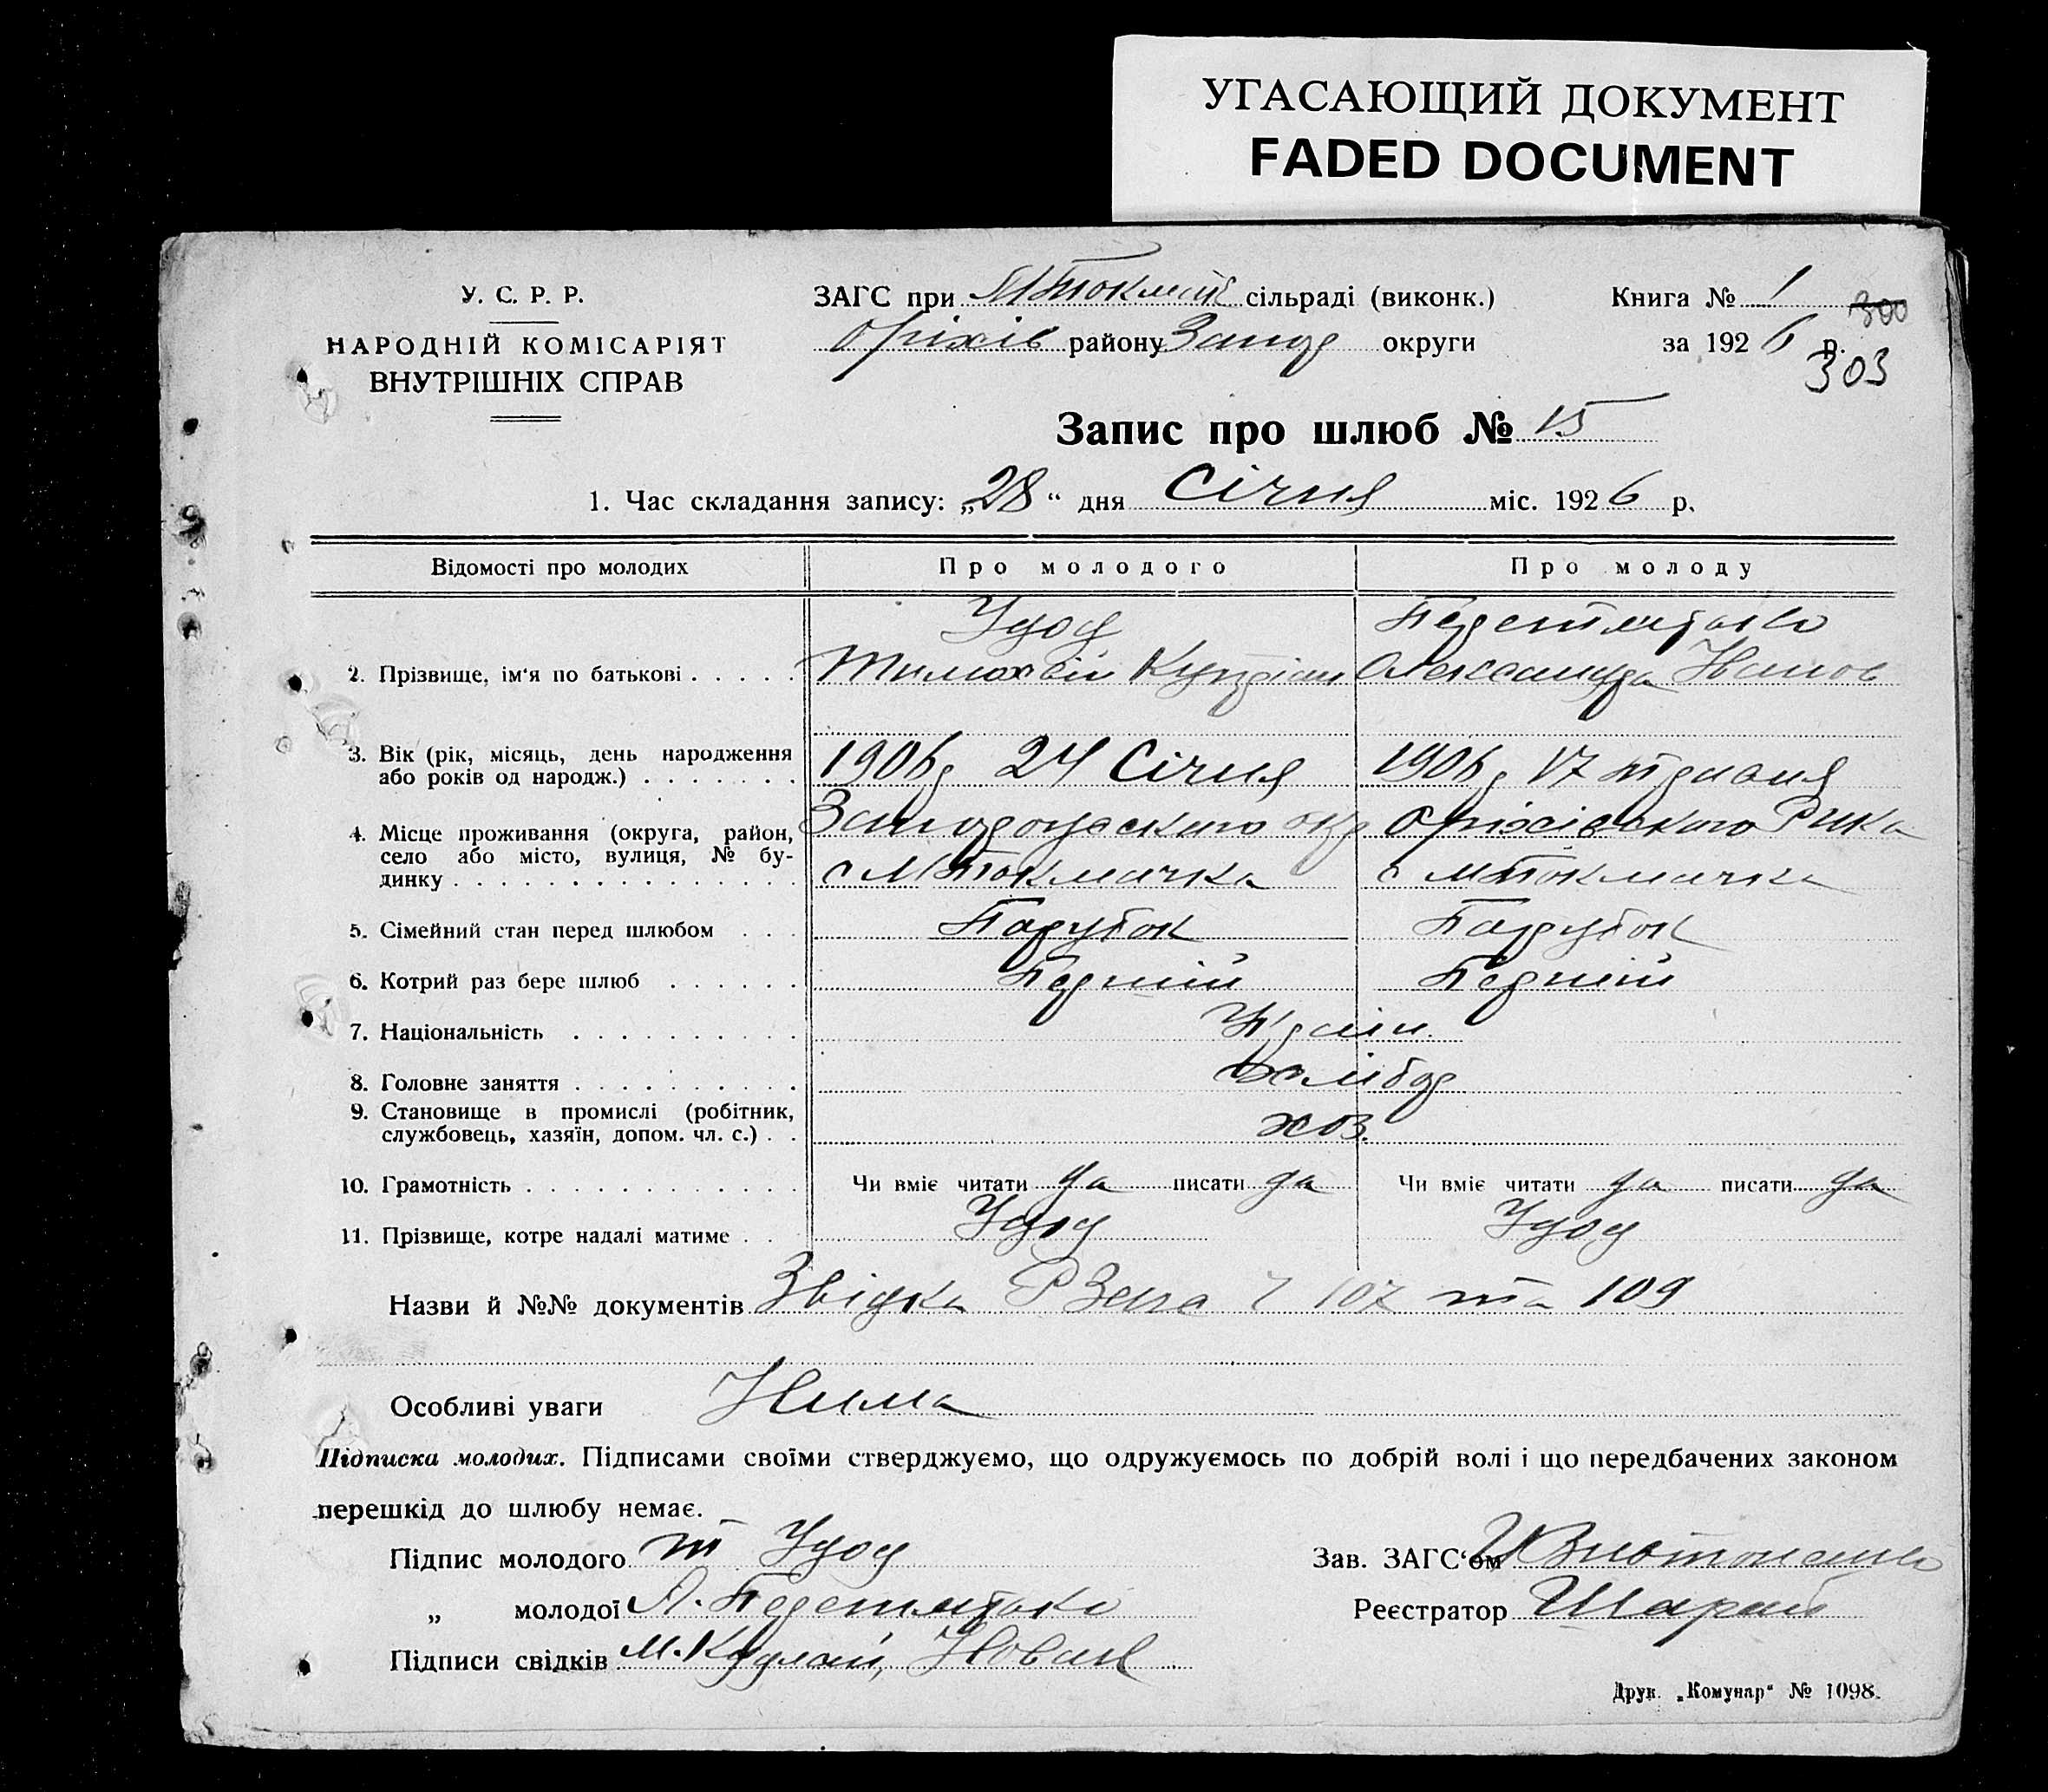 УГАСАЮЩИЙ ДОКУМЕНТ
FADED DOCUMENT
У. С. Р. Р.
НАРОДНІЙ КОМІСАРІЯТ
ВНУТРІШНІХ СПРАВ
ЗАГС при МТокмац сільраді (виконк.)
Оріхів району Запор округи
Книга № 1
300
за 1926 р.
303
Запис про шлюб № 15
1. Час складання запису: „28“ дня Січня міс. 1926 р.
Відомості про молодих Про молодого Про молоду
2. Прізвище, ім'я по батькові . . . . .
Удод
Тимохвій Купріян
Олександра
3. Вік (рік, місяць, день народження
або років од народж.) . . . . . . .
1906р 24 Січня
1906р 17
4. Місце проживання (округа, район,
село або місто, вулиця, № бу-
динку . . . . . . . . . . . . . . .
Запорожського окр Оріхівського Рика
с МТокмачка с МТокмачка
5. Сімейний стан перед шлюбом . . . Парубок Парубок
6. Котрий раз бере шлюб . . . . . . Перший Перший
7. Національність . . . . . . . . . . Україн.
8. Головне заняття . . . . . . . . . . Хлібор
9. Становище в промислі (робітник,
службовець, хазяїн, допом. чл. с.) . . хоз.
10. Грамотність . . . . . . . . . . . . . Чи вміє читати да писати да Чи вміє читати да писати да
11. Прізвище, котре надалі матиме . . . Удод Удод
Назви й №№ документів Звідка РЗагса 107 та 109
Особливі уваги Нима
Підписка молодих. Підписами своїми стверджуємо, що одружуємось по добрій волі і що передбачених законом
перешкід до шлюбу немає.
Підпис молодого Т Удод
„ молодої А.
Підписи свідків М.
Зав. ЗАГС'ом
Реєстратор
Друк. „Комунар“ № 1098.